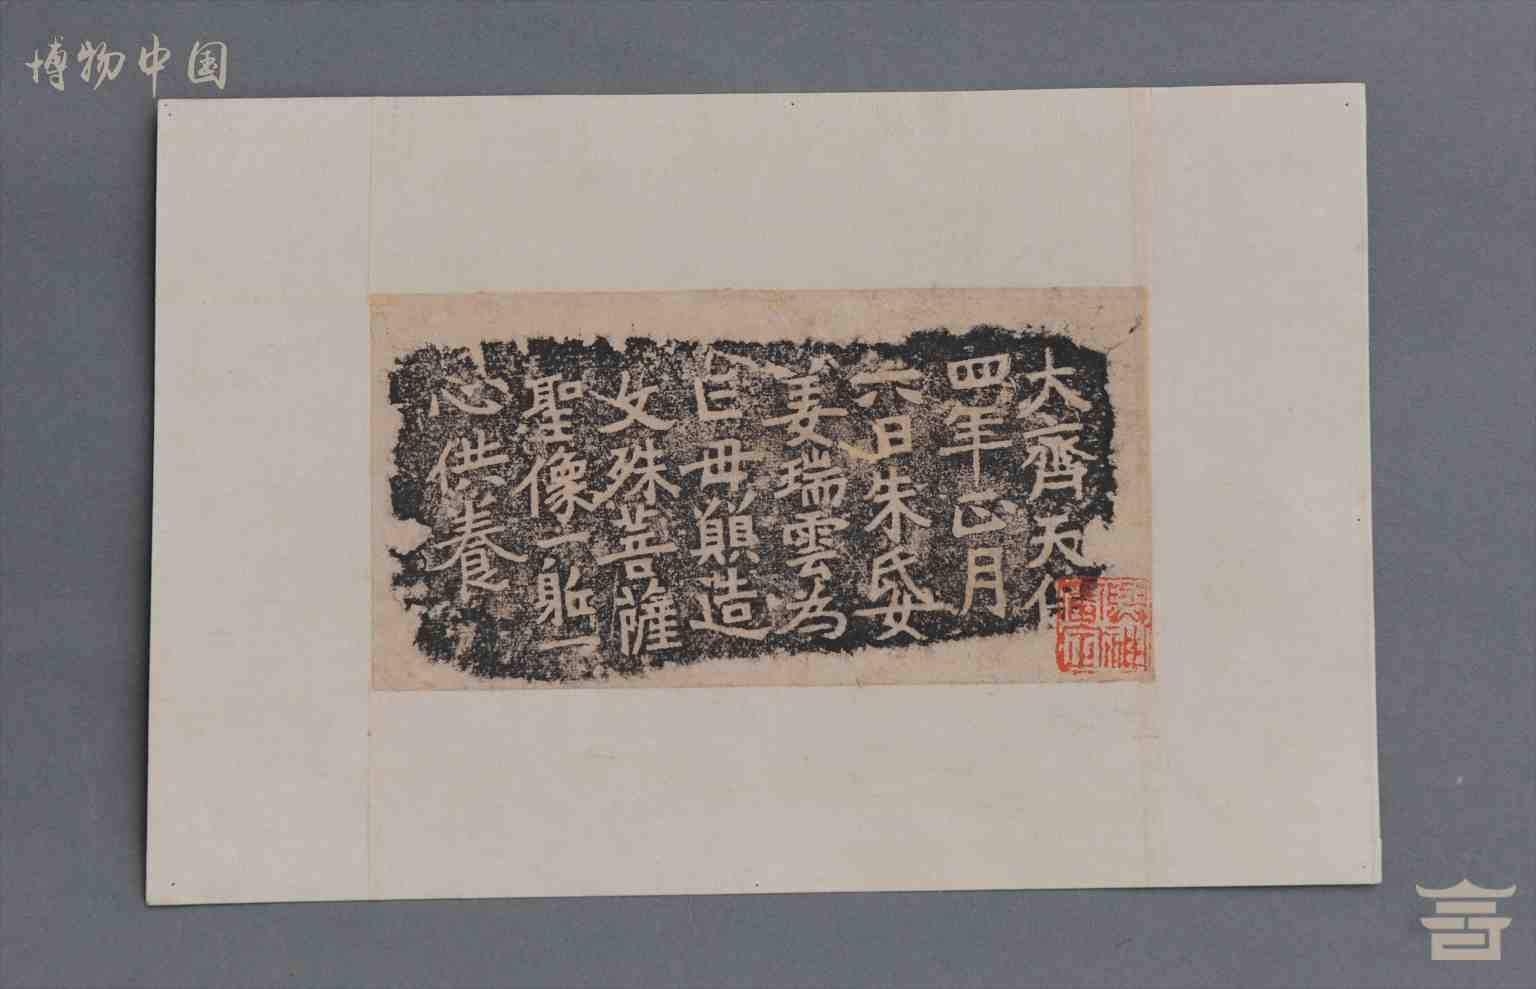 博物中国
大齊天保
四年正月
六日朱氏女
姜瑞雲為
亡母願造
文殊菩薩
聖像一躯一
心供養